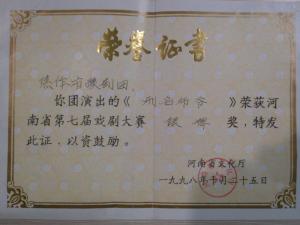 荣誉证书
焦作市豫剧团
你团演出的《刑名师爷》荣获河
南省第七届戏剧大赛 银牌 奖，特发
此证，以资鼓励。
河南省文化厅
一九九八年十月二十五日